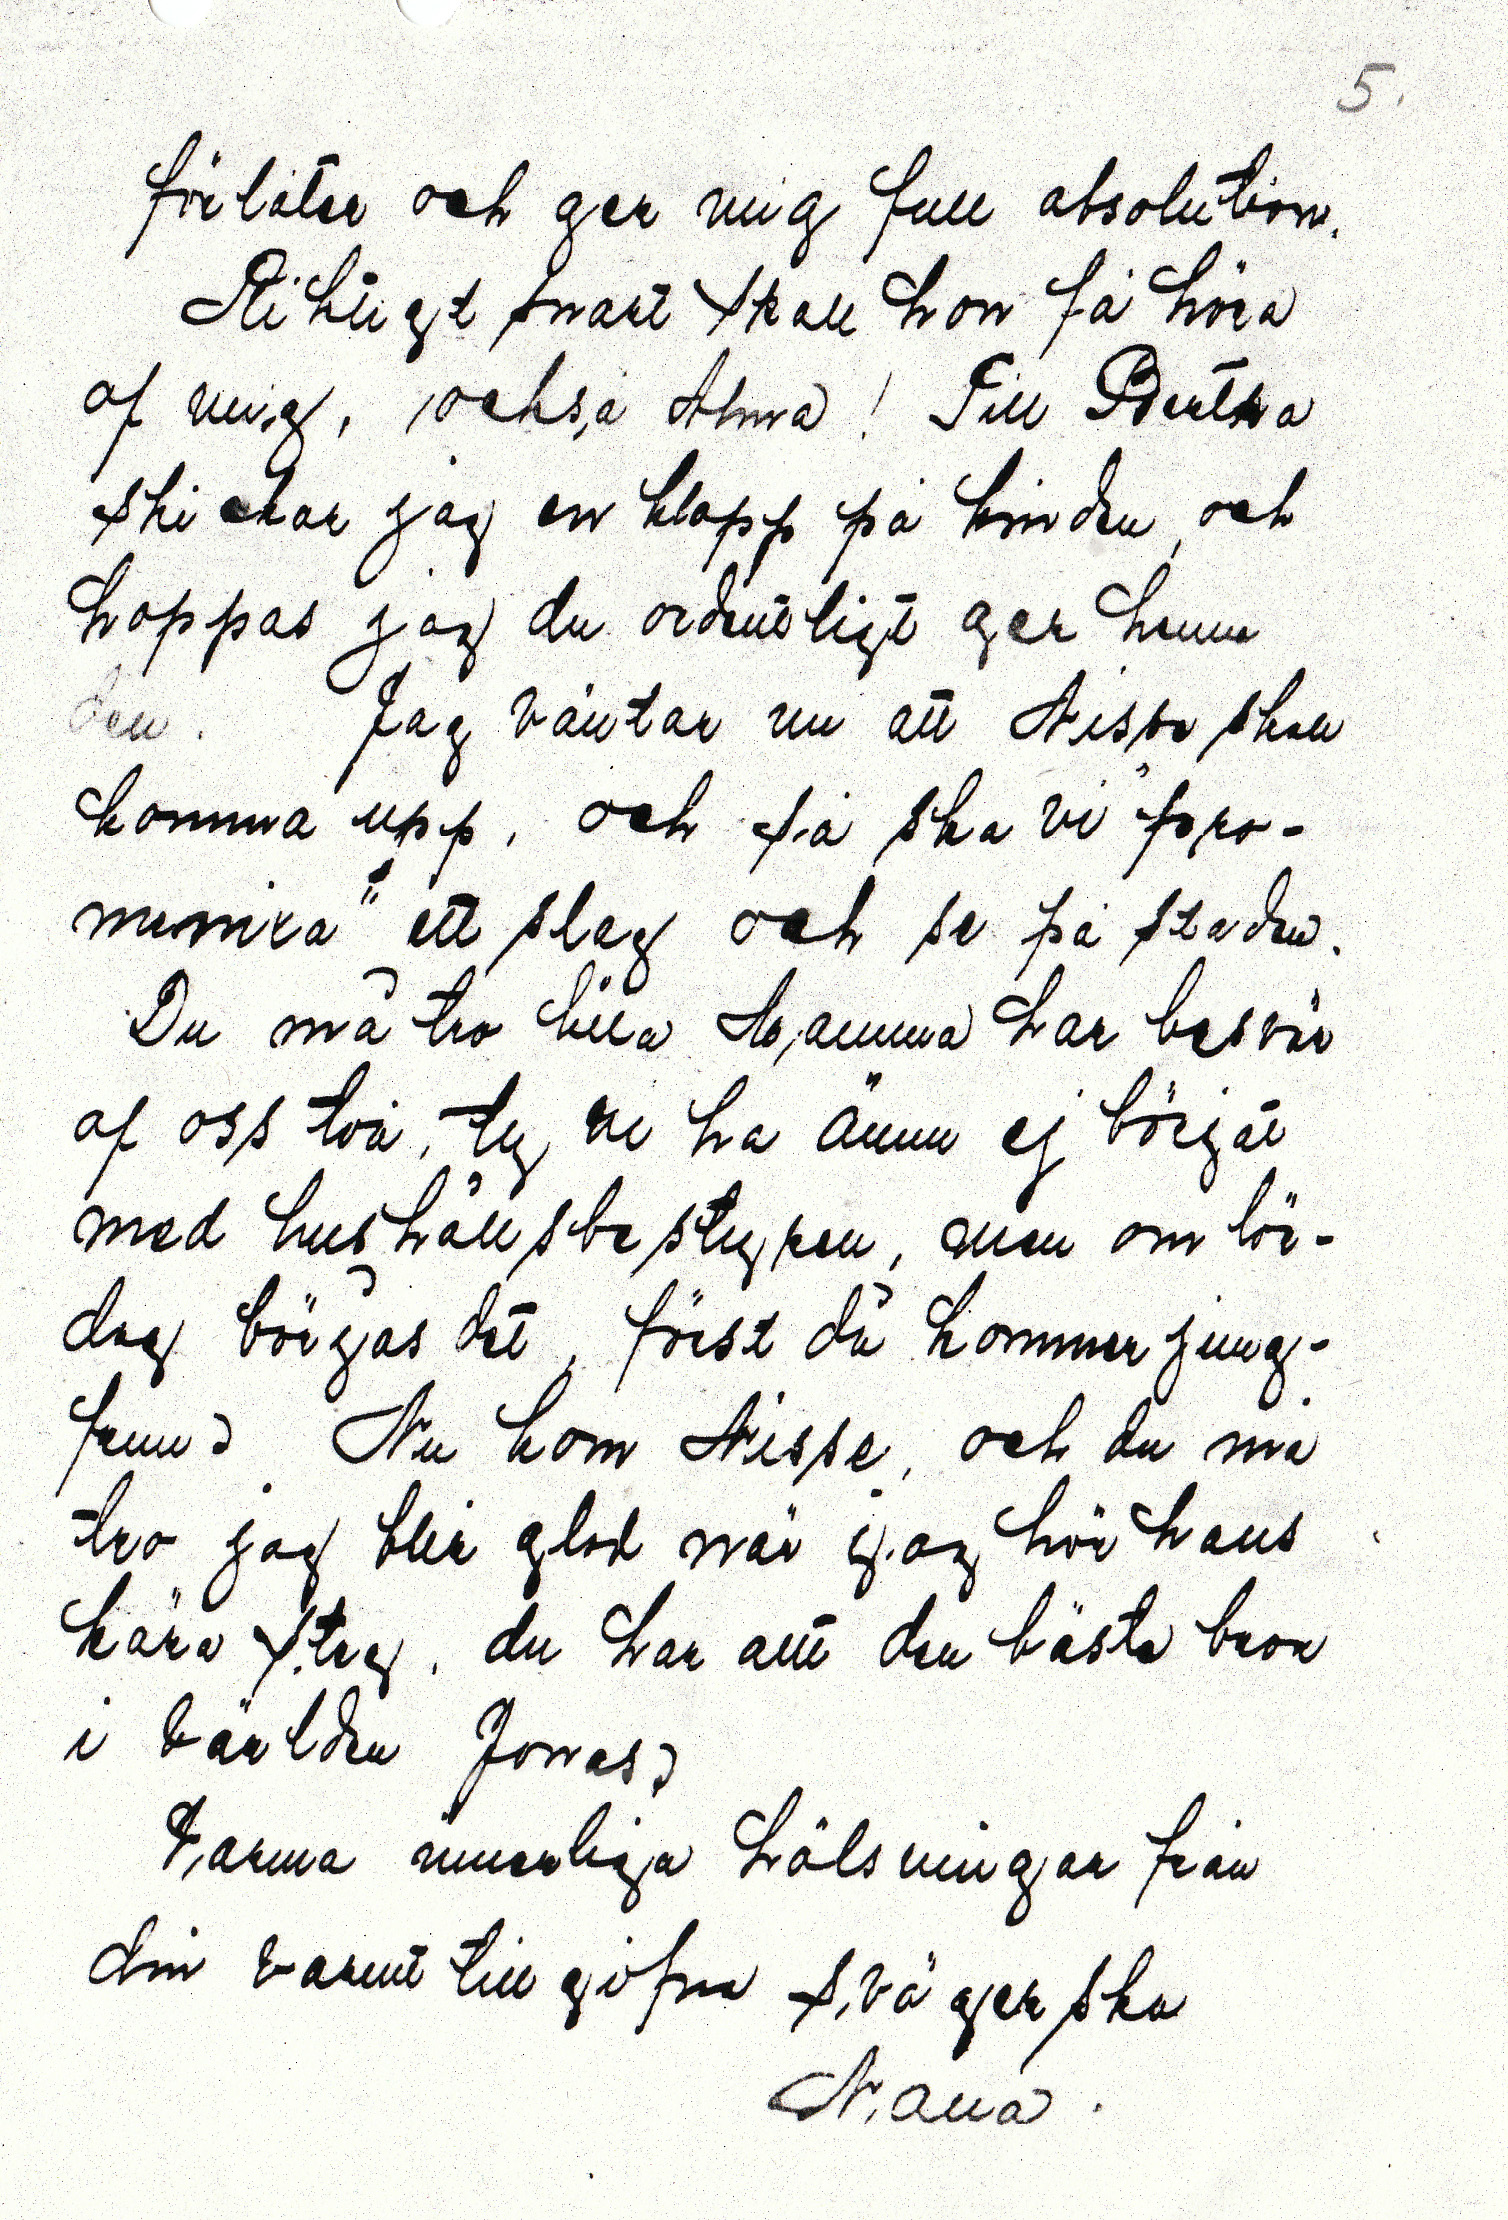 5.
förlåter och ger mig full absolution.
Riktigt snart skall hon få höra
af mig, också Anna! Till Bertha
skickar jag en klapp på kinden, och
hoppas jag du ordentligt ger henne
den. Jag väntar nu att Nisse skall
komma upp, och så ska vi "pro-
menira" ett slag och se på staden.
Du må tro lilla Mamma har besvär
af oss två, ty vi ha ännu ej börjat
med hushållsbestyren, men om lör-
dag börjas det, först då kommer jung-
frun. Nu kom Nisse, och du må
tro jag blir glad när jag hör hans
kära steg, du har allt den bästa bror
i världen Jonas.
Varma innerliga hälsningar från
din varmt tillgifna svägerska
Nana.